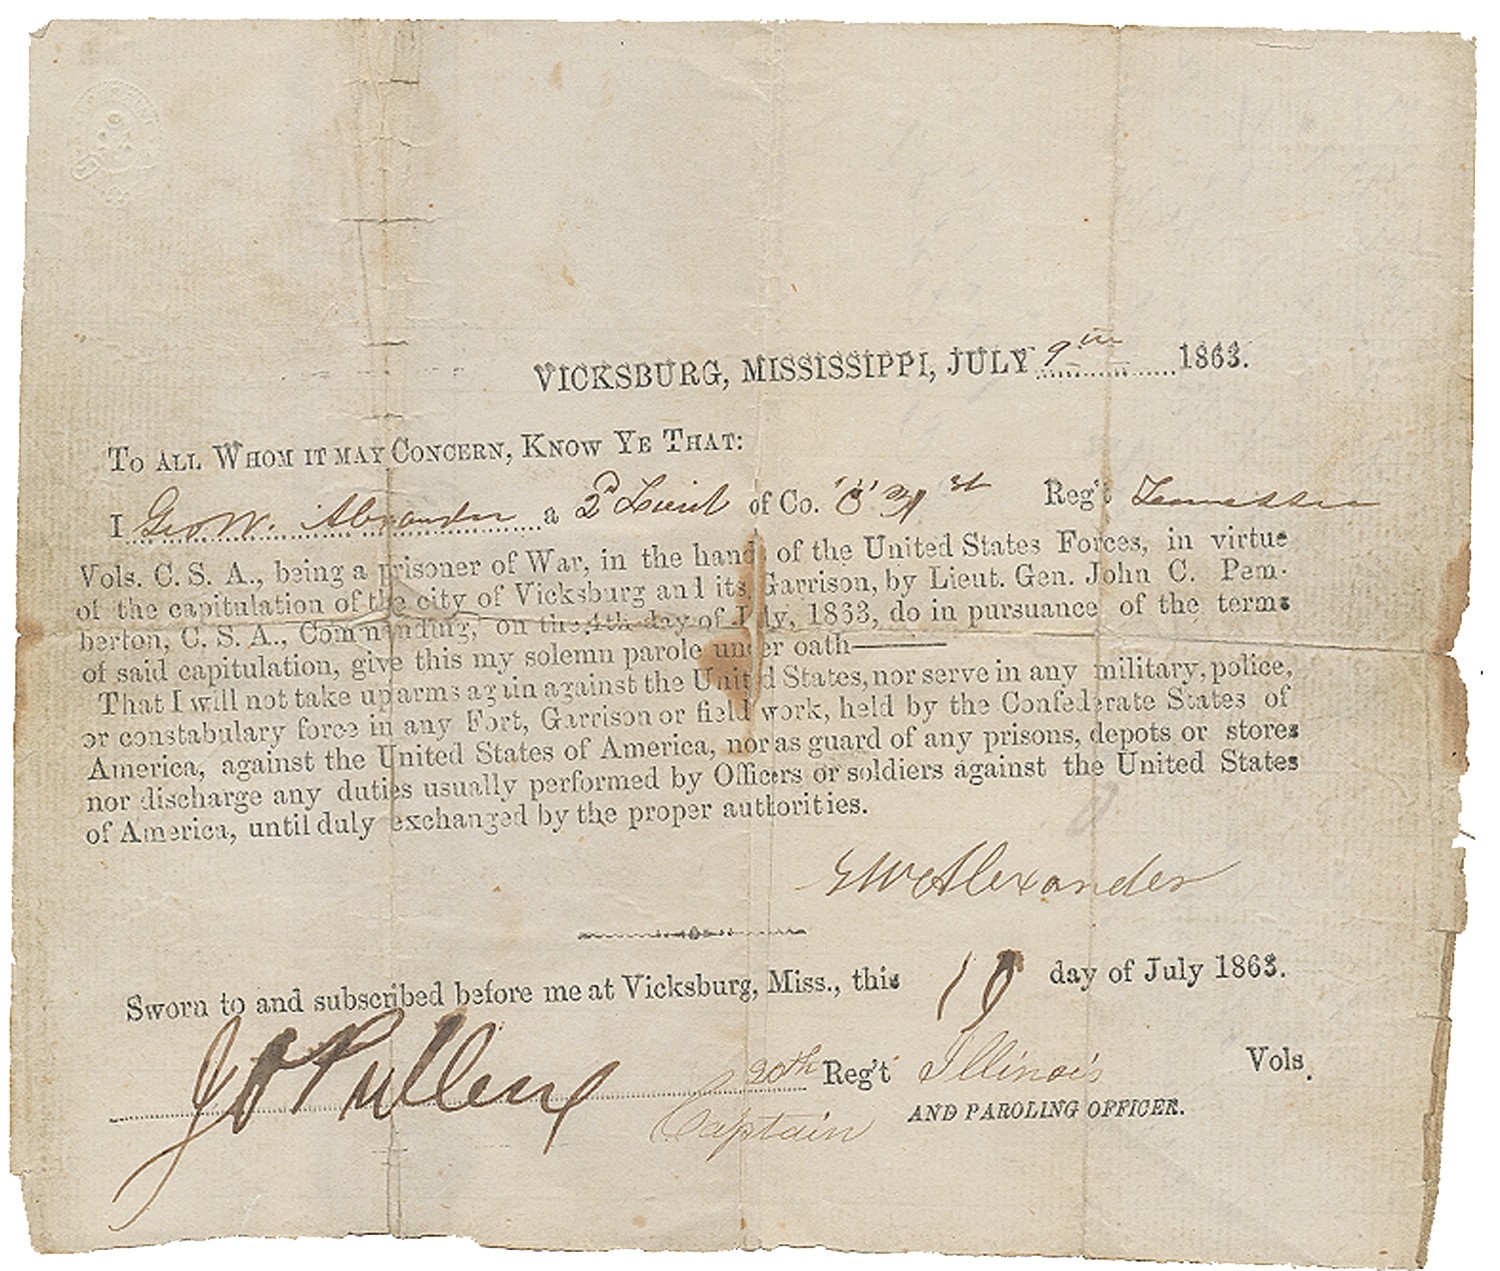 VICKSBURG, MISSISSIPPI, JULY 9th 1863.
TO ALL WHOM IT MAY CONCERN, KNOW YE THAT:
I Geo W. Alexander a 2d Lieut of Co. 31st Reg't Tennessee
Vols. C. S. A., being a prisoner of War, in the hands of the United States Forces, in virtue
of the capitulation of the city of Vicksburg and its Garrison, by Lieut. Gen. John C. Pem-
berton, C. S. A., Commanding, on the 4th day of July, 1863, do in pursuance of the terms
of said capitulation, give this my solemn parole under oath——
That I will not take up arms again against the United States, nor serve in any military, police,
or constabulary force in any Fort, Garrison or field work, held by the Confederate States of
America, against the United States of America, nor as guard of any prisons, depots or stores
nor discharge any duties usually performed by Officers or soldiers against the United States
of America, until duly exchanged by the proper authorities.
GW Alexander
Sworn to and subscribed before me at Vicksburg, Miss., this 10 day of July 1863.
J O Pullen 20th Reg't Illinois Vols.
Captain AND PAROLING OFFICER.